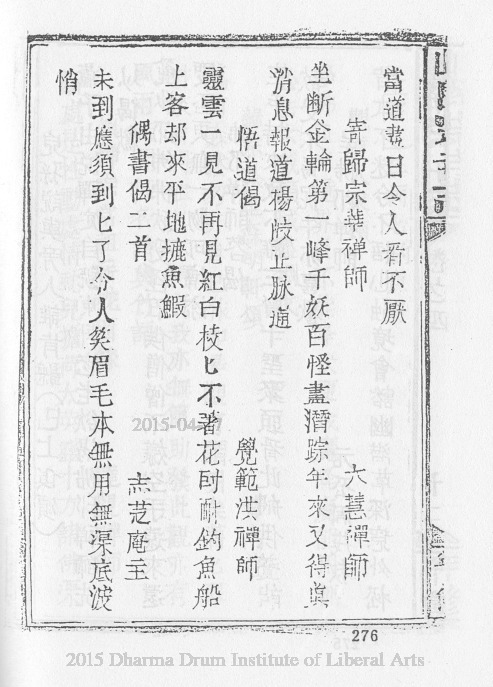 當道盡日令人看不厭
寄歸宗華禪師 大慧禪師
坐斷金輪第一峰千妖百怪盡潛踪年來又得真
消息報道楊岐正脉通
悟道偈 覺範洪禪師
靈雲一見不再見紅白枝匕不著花叵耐釣魚船
上客却來平地摝魚鰕
偶書偈二首 志芝庵主
未到應須到匕了令人笑眉毛本無用無渠底波
悄
276
2015-04-
2015 Dharma Drum Institute of Liberal Arts